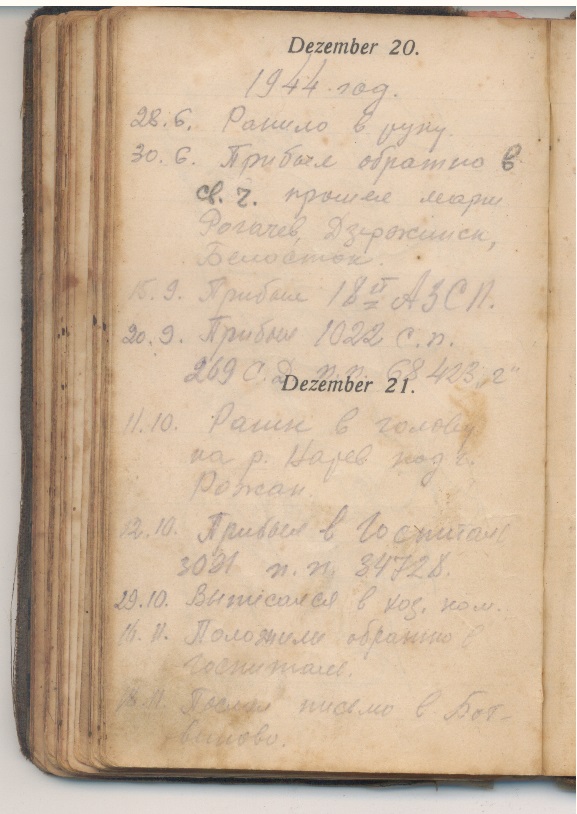 Dezember 20.
1944 год.
28.6. Ранило в руку.
30.6. Прибыл обратно в
св. ч. прошел марш
Рогачев, Дзержинск,
Белосток.
15.9. Прибыл 18й АЗСП.
20.9. Прибыл 1022 с.п.
269 С.Д. п.п. 68423 „г“
Dezember 21.
11.10. Ранен в голову
на р. Нарев под г.
Рожан
12.10. Прибыл в Госпиталь
3031 п.п. 34728.
29.10. Выписался в хоз. ком.
16.11. Положили обратно в
госпиталь.
18.11. Послал письмо в Бот-
виново.